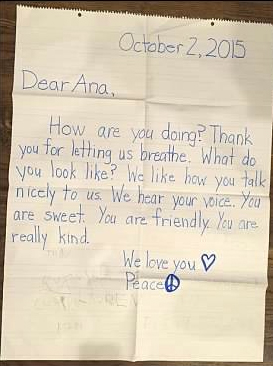 October 2, 2015
Dear Ana,
How are you doing? Thank
you for letting us breathe. What do
you look like? We like how you talk
nicely to us. We hear your voice. You
are sweet. You are friendly. You are
really kind.
We love you ♡
Peace ☮